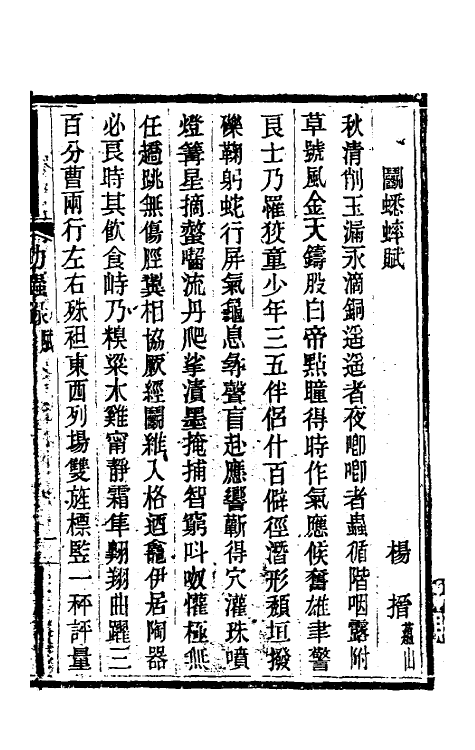 鬭蟋蟀賦
楊搢蕭山
秋清削玉漏永滴銅遥遥者夜喞喞者蟲循階咽露附
草號風金天鑄股白帝點瞳得時作氣應候奮雄聿警
良士乃罹狡童少年三五伴侶什百僻徑潛形頹垣撥
礫鞠躬蛇行屏氣龜息彖聲盲赴應響靳得穴灌珠噴
燈篝星摘螫囓流丹爬拏漬墨掩捕智窮叫呶懽極無
任趫跳無傷脛翼相協厥經鬭雜入格迺龕伊居陶器
必良時其飲食峙乃糗粱木雞甯靜霜隼翱翔曲躍三
百分曹兩行左右殊袒東西列場雙旌標監一秤評量
功蟲錄
賦